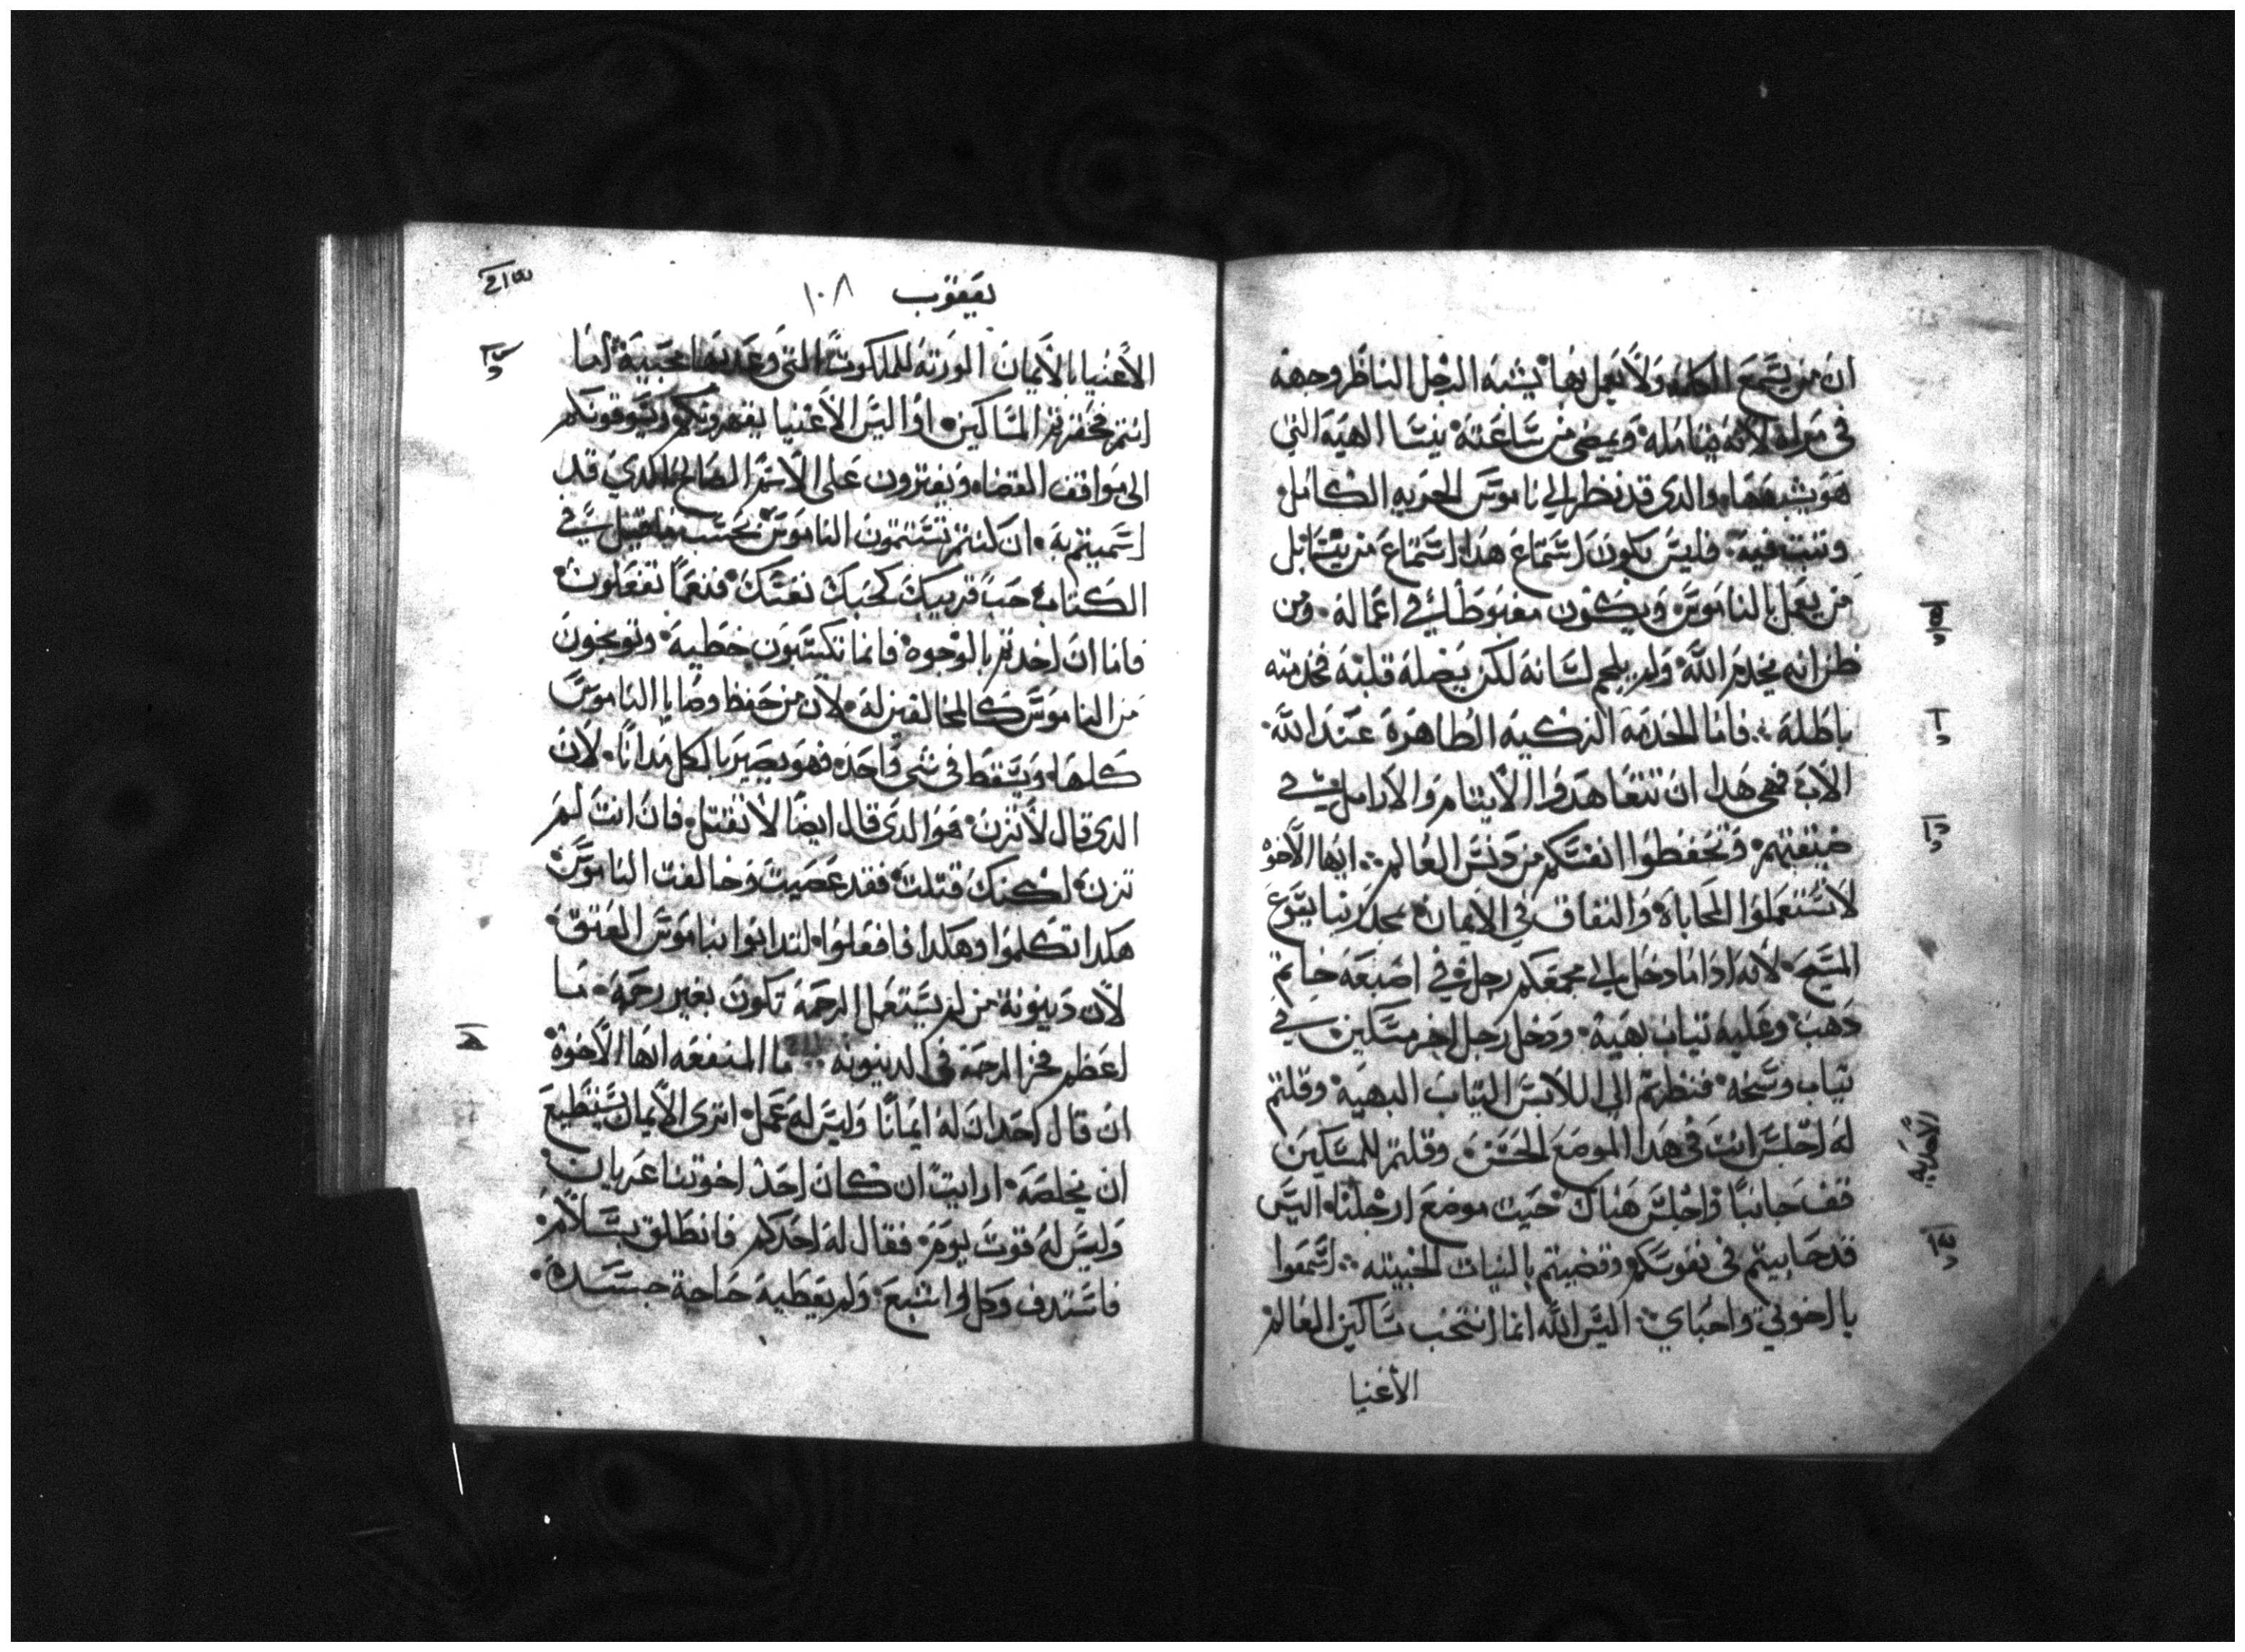 ان من يسمع الكلمه ولا يعمل بها يشبه الرجل الناظر وجهه
في مراه لانه يتامله ويمضي من ساعته ينسا الهيه التي
هو يشبهها والدي قد نظر الي ناموس الحريه الكامل
وتبت فيه فليس يكون استماع هدا استماع من ينسا بل
من يعمل بالناموس ويكون مغبوطا في اعماله ومن
ظن انه يخدم الله ولم يلجم لسانه لكن يضله قلبه فخدمته
باطله فاما الخدمه الزكيه الطاهره عند الله
الاب فهي هدا ان تتعاهدوا الايتام والارامل في
ضيقتهم وتحفظوا انفسكم من دنس العالم ايها الاخوه
لا تستعملوا المحاباه والنفاق في الايمان بمجد ربنا يسوع
المسيح لانه ادا ما دخل الي مجمعكم رجل في اصبعه خاتم
دهب وعليه تياب بهيه ودخل رجل اخر مسكين في
تياب وسخه فنظرتم الي اللابس التياب البهيه وقلتم
له اجلس انت في هدا الموضع الحسن وقلتم للمسكين
قف جانبا واجلس هناك حيت موضع ارجلنا اليس
قد حابيتم في نفوسكم وقضيتم بالنيات الخبيته اسمعوا
يا اخوتي واحباي اليس الله انما انتخب مساكين العالم
الاغنيا
يعقوب ١٠٨
الاغنيا بالايمان الورته للملكوت التي وعد بها محبيه اما
انتم فحقرتم المساكين او اليس الاغنيا يقهرونكم ويسوقونكم
الي مواقف القضاه ويفترون علي الاسم الصالح الدي قد
اسميتم به ان كنتم تتمون الناموس بحسب ما قيل في
الكتاب حب قريبك كحبك نفسك فنعما تفعلون
فاما ان اخدتم بالوجوه فانما تكتسبون خطيه وتوبخون
من الناموس كالمخالفين له لان من حفظ وصايا الناموس
كلها ويسقط في شي واحد فهو يصير بالكل مدانا لان
الدي قال لا تزن هو الدي قال ايضا لا تقتل فان انت لم
تزن لكنك قتلت فقد عصيت وخالفت الناموس
هكدا تكلموا وهكدا فافعلوا لتدانوا بناموس العتق
لان دينونة من لم يستعمل الرحمه تكون بغير رحمه ما
اعظم فخر الرحمه في الدينونه ما المنفعه ايها الاخوه
ان قال احد ان له ايمانا وليس له عمل اتري الايمان يستطيع
ان يخلصه ارايت ان كان احد اخوتنا عريان
وليس له قوت يوم فقال له احدكم فانطلق بسلام
فاستدف وكل واشبع ولم يعطيه حاجة جسده